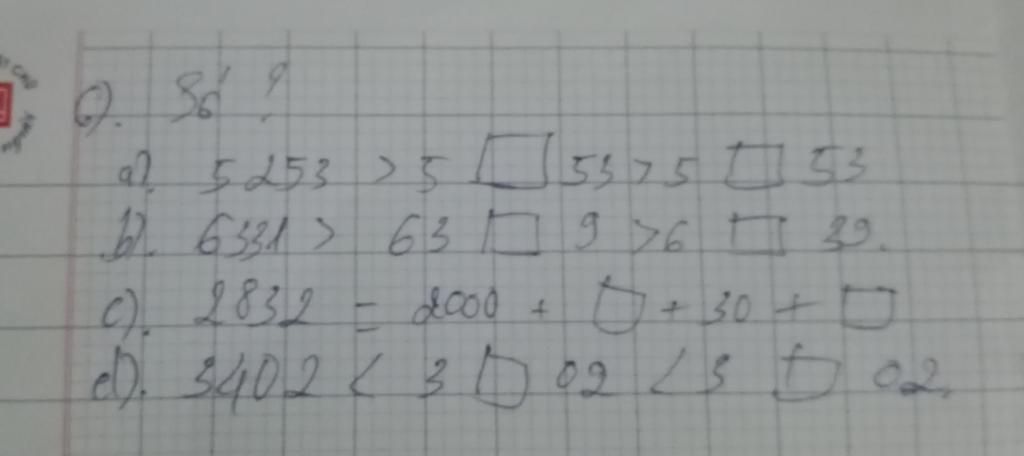 6). Số ?
a). 5253 > 5 □ 53 > 5 □ 53
b). 6331 > 63 □ 9 > 6 □ 39.
c). 2832 = 2000 + □ + 30 + □
d). 3402 < 3 □ 02 < 3 □ 02.